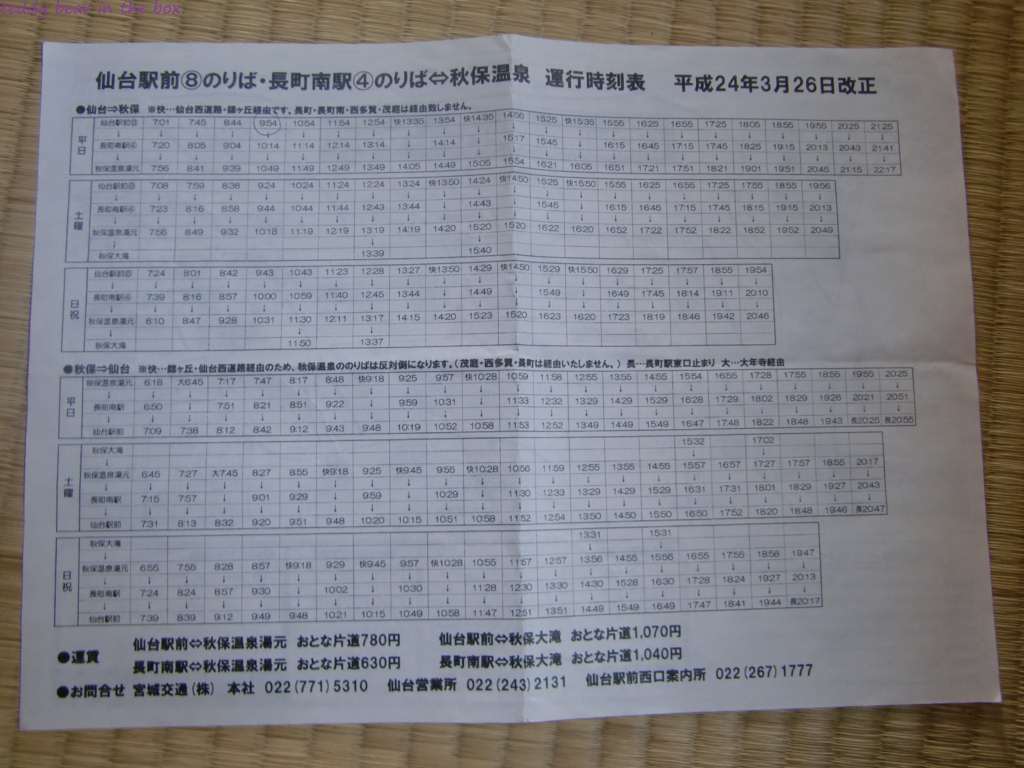 teddy bear in the box
仙台駅前⑧のりば・長町南駅④のりば⇔秋保温泉 運行時刻表 平成24年3月26日改正
●仙台⇒秋保 ※快…仙台西道路・錦ヶ丘経由です。長町・長町南・西多賀・茂庭は経由致しません。
平日
仙台駅前⑧ 7:01 7:45 8:44 9:54 10:54 11:54 12:54 快13:35 13:54 快14:35 14:56 15:25 快15:35 15:55 16:25 16:55 17:25 18:05 18:55 19:55 20:25 21:25
長町南駅④ 7:20 8:05 9:04 10:14 11:14 12:14 13:14 ↓ 14:14 ↓ 15:17 15:45 ↓ 16:15 16:45 17:15 17:45 18:25 19:15 20:13 20:43 21:41
秋保温泉湯元 7:56 8:41 9:39 10:49 11:49 12:49 13:49 14:05 14:49 15:05 15:54 16:21 16:05 16:51 17:21 17:51 18:21 19:01 19:51 20:45 21:15 22:17
土曜
仙台駅前⑧ 7:08 7:59 8:38 9:24 10:24 11:24 12:24 13:24 快13:50 14:24 快14:50 15:25 快15:50 15:55 16:25 16:55 17:25 17:55 18:55 19:56
長町南駅④ 7:23 8:16 8:58 9:44 10:44 11:44 12:43 13:44 ↓ 14:43 ↓ 15:45 ↓ 16:15 16:45 17:15 17:45 18:15 19:15 20:13
秋保温泉湯元 7:56 8:49 9:32 10:18 11:19 12:19 13:19 14:19 14:20 15:20 15:20 16:22 16:20 16:52 17:22 17:52 18:22 18:52 19:52 20:49
秋保大滝 13:39 15:40
日祝
仙台駅前⑧ 7:24 8:01 8:42 9:43 10:43 11:23 12:28 13:27 快13:50 14:29 快14:50 15:29 快15:50 16:29 17:25 17:57 18:55 19:54
長町南駅④ 7:39 8:16 8:57 10:00 10:59 11:40 12:45 13:44 ↓ 14:49 ↓ 15:49 ↓ 16:49 17:45 18:14 19:11 20:10
秋保温泉湯元 8:10 8:47 9:28 10:31 11:30 12:11 13:17 14:15 14:20 15:23 15:20 16:23 16:20 17:23 18:19 18:46 19:42 20:46
秋保大滝 11:50 13:37
●秋保⇒仙台 ※快…錦ヶ丘・仙台西道路経由のため、秋保温泉ののりばは反対側になります。(茂庭・西多賀・長町は経由いたしません。) 長…長町駅東口止まり 大…大年寺経由
平日
秋保温泉湯元 6:18 大6:45 7:17 7:47 8:17 8:48 快9:18 9:25 9:57 快10:28 10:59 11:58 12:55 13:55 14:55 15:54 16:55 17:28 17:55 18:55 19:55 20:25
長町南駅 6:50 ↓ 7:51 8:21 8:51 9:22 ↓ 9:59 10:31 ↓ 11:33 12:32 13:29 14:29 15:29 16:28 17:29 18:02 18:29 19:26 20:21 20:51
仙台駅前 7:09 7:38 8:12 8:42 9:12 9:43 9:48 10:19 10:52 10:58 11:53 12:52 13:49 14:49 15:49 16:47 17:48 18:22 18:48 19:43 長20:25 長20:55
土曜
秋保大滝 15:32 17:02
秋保温泉湯元 6:45 7:27 大7:45 8:27 8:55 快9:18 9:25 快9:45 9:55 快10:28 10:56 11:59 12:55 13:55 14:55 15:57 16:57 17:27 17:57 18:55 20:17
長町南駅 7:15 7:57 ↓ 9:01 9:29 ↓ 9:59 ↓ 10:29 ↓ 11:30 12:33 13:29 14:29 15:29 16:31 17:31 18:01 18:29 19:27 20:43
仙台駅前 7:31 8:13 8:32 9:20 9:51 9:48 10:20 10:15 10:51 10:58 11:52 12:54 13:50 14:50 15:50 16:50 17:52 18:20 18:48 19:46 長20:47
日祝
秋保大滝 13:31 15:31
秋保温泉湯元 6:55 7:55 8:28 8:57 快9:18 9:29 快9:45 9:57 快10:28 10:55 11:57 12:57 13:56 14:55 15:56 16:55 17:55 18:56 19:47
長町南駅 7:24 8:24 8:57 9:30 ↓ 10:02 ↓ 10:30 ↓ 11:28 12:30 13:30 14:30 15:28 16:30 17:28 18:24 19:27 20:13
仙台駅前 7:39 8:39 9:12 9:49 9:48 10:21 10:15 10:49 10:58 11:47 12:51 13:51 14:49 15:49 16:49 17:47 18:41 19:44 長20:17
●運賃 仙台駅前⇔秋保温泉湯元 おとな片道780円 仙台駅前⇔秋保大滝 おとな片道1,070円
長町南駅⇔秋保温泉湯元 おとな片道630円 長町南駅⇔秋保大滝 おとな片道1,040円
●お問合せ 宮城交通(株) 本社 022(771)5310 仙台営業所 022(243)2131 仙台駅前西口案内所 022(267)1777